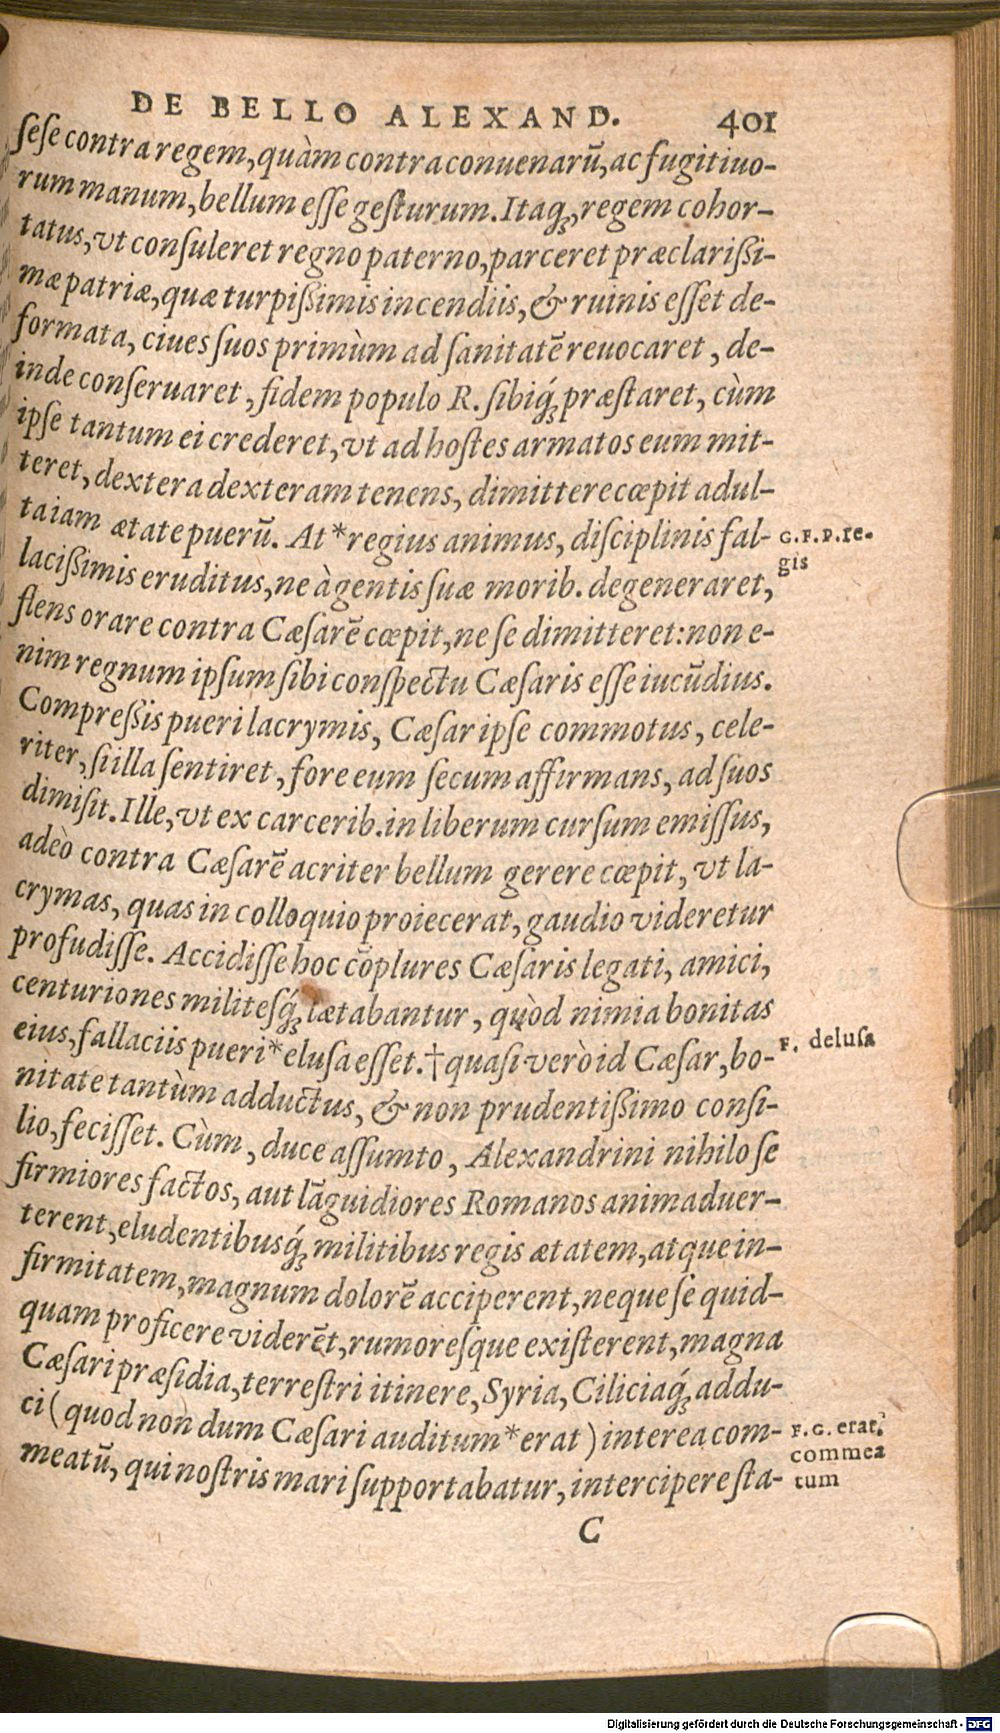 DE BELLO ALEXAND. 401
ſeſe contra regem, quàm contra conuenarũ, ac fugitiuo-
rum manum, bellum eſſe geſturum. Itaq́ꝫ, regem cohor-
tatus, vt conſuleret regno paterno, parceret præclarißi-
mæ patriæ, quæ turpißimis incendiis, & ruinis eſſet de-
formata, ciues ſuos primùm ad ſanitatẽ reuocaret, de-
inde conſeruaret, fidem populo R. ſibiq́ꝫ præſtaret, cùm
ipſe tantum ei crederet, vt ad hoſtes armatos eum mit-
teret, dextera dexteram tenens, dimittere cœpit adul-
taiam ætate puerũ. At*regius animus, diſciplinis fal-
G. F. P. re-
gis
lacißimis eruditus, ne à gentis ſuæ morib. degeneraret,
flens orare contra Cæſarẽ cœpit, ne ſe dimitteret: non e-
nim regnum ipſum ſibi conſpectu Cæſaris eſſe iucũdius.
Compreßis pueri lacrymis, Cæſar ipſe commotus, cele-
riter, ſi illa ſentiret, fore eum ſecum affirmans, ad ſuos
dimiſit. Ille, vt ex carcerib. in liberum curſum emiſſus,
adeò contra Cæſarẽ acriter bellum gerere cœpit, vt la-
crymas, quas in colloquio proiecerat, gaudio videretur
profudiſſe. Accidiſſe hoc cõplures Cæſaris legati, amici,
centuriones militeſq́ꝫ lætabantur, quòd nimia bonitas
eius, fallaciis pueri*eluſa eſſet.†quaſi verò id Cæſar, bo-
F. deluſa
nitate tantùm adductus, & non prudentißimo conſi-
lio, feciſſet. Cùm, duce aſſumto, Alexandrini nihilo ſe
firmiores factos, aut lãguidiores Romanos animaduer-
terent, eludentibusq́ꝫ militibus regis ætatem, atque in-
firmitatem, magnum dolorẽ acciperent, neque ſe quid-
quam proficere viderẽt, rumoreſque exiſterent, magna
Cæſari præſidia, terreſtri itinere, Syria, Ciliciaq́ꝫ addu-
ci (quod non dum Cæſari auditum*erat) interea com-
F. G. erat,
commea
tum
meatũ, qui noſtris mari ſupportabatur, intercipere ſta-
C
Digitalisierung gefördert durch die Deutsche Forschungsgemeinschaft - DFG